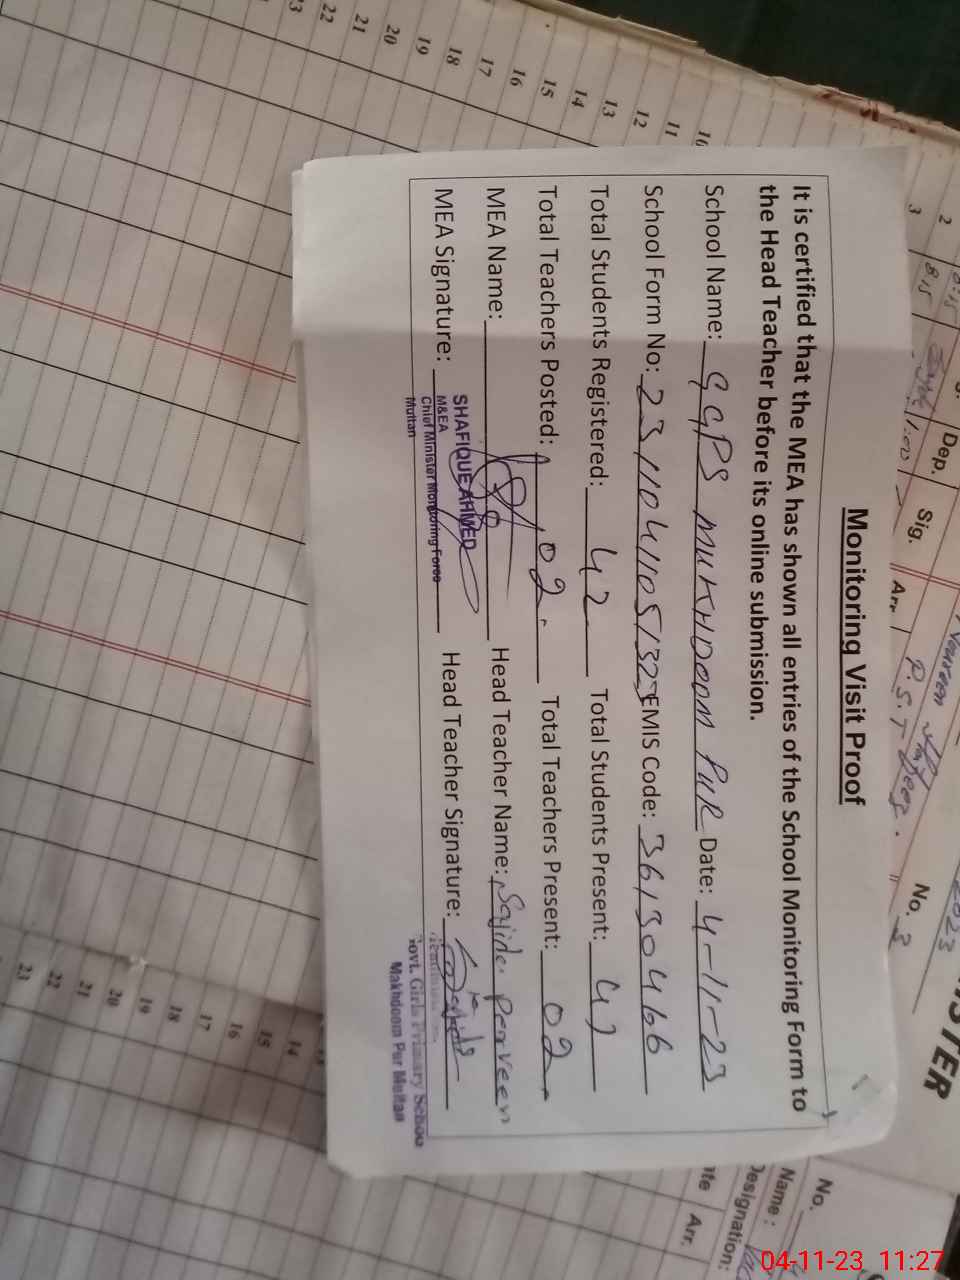 Monitoring Visit Proof
It is certified that the MEA has shown all entries of the School Monitoring Form to
the Head Teacher before its online submission.
School Name: GGPS MUKHDOOM PUR Date: 4-11-23
School Form No: EMIS Code: 36130466
Total Students Registered: 42 Total Students Present:
Total Teachers Posted: 02 Total Teachers Present: 02
MEA Name: Head Teacher Name: Sajida Parveen
MEA Signature: Head Teacher Signature:
SHAFIQUE AHMED
M&EA
Chief Minister Monitoring Force
Multan
Govt. Girls Primary Schoo
Makhdoom Pur Multan
2
3
8:15
8:15
1:00
Dep.
Sig.
Arr.
P.S.T
No. 3
2023
STER
No.
Name :
Designation:
Arr.
23
22
21
20
19
18
17
16
15
14
13
12
11
10
23
22
21
20
19
18
17
16
15
14
04-11-23 11:27